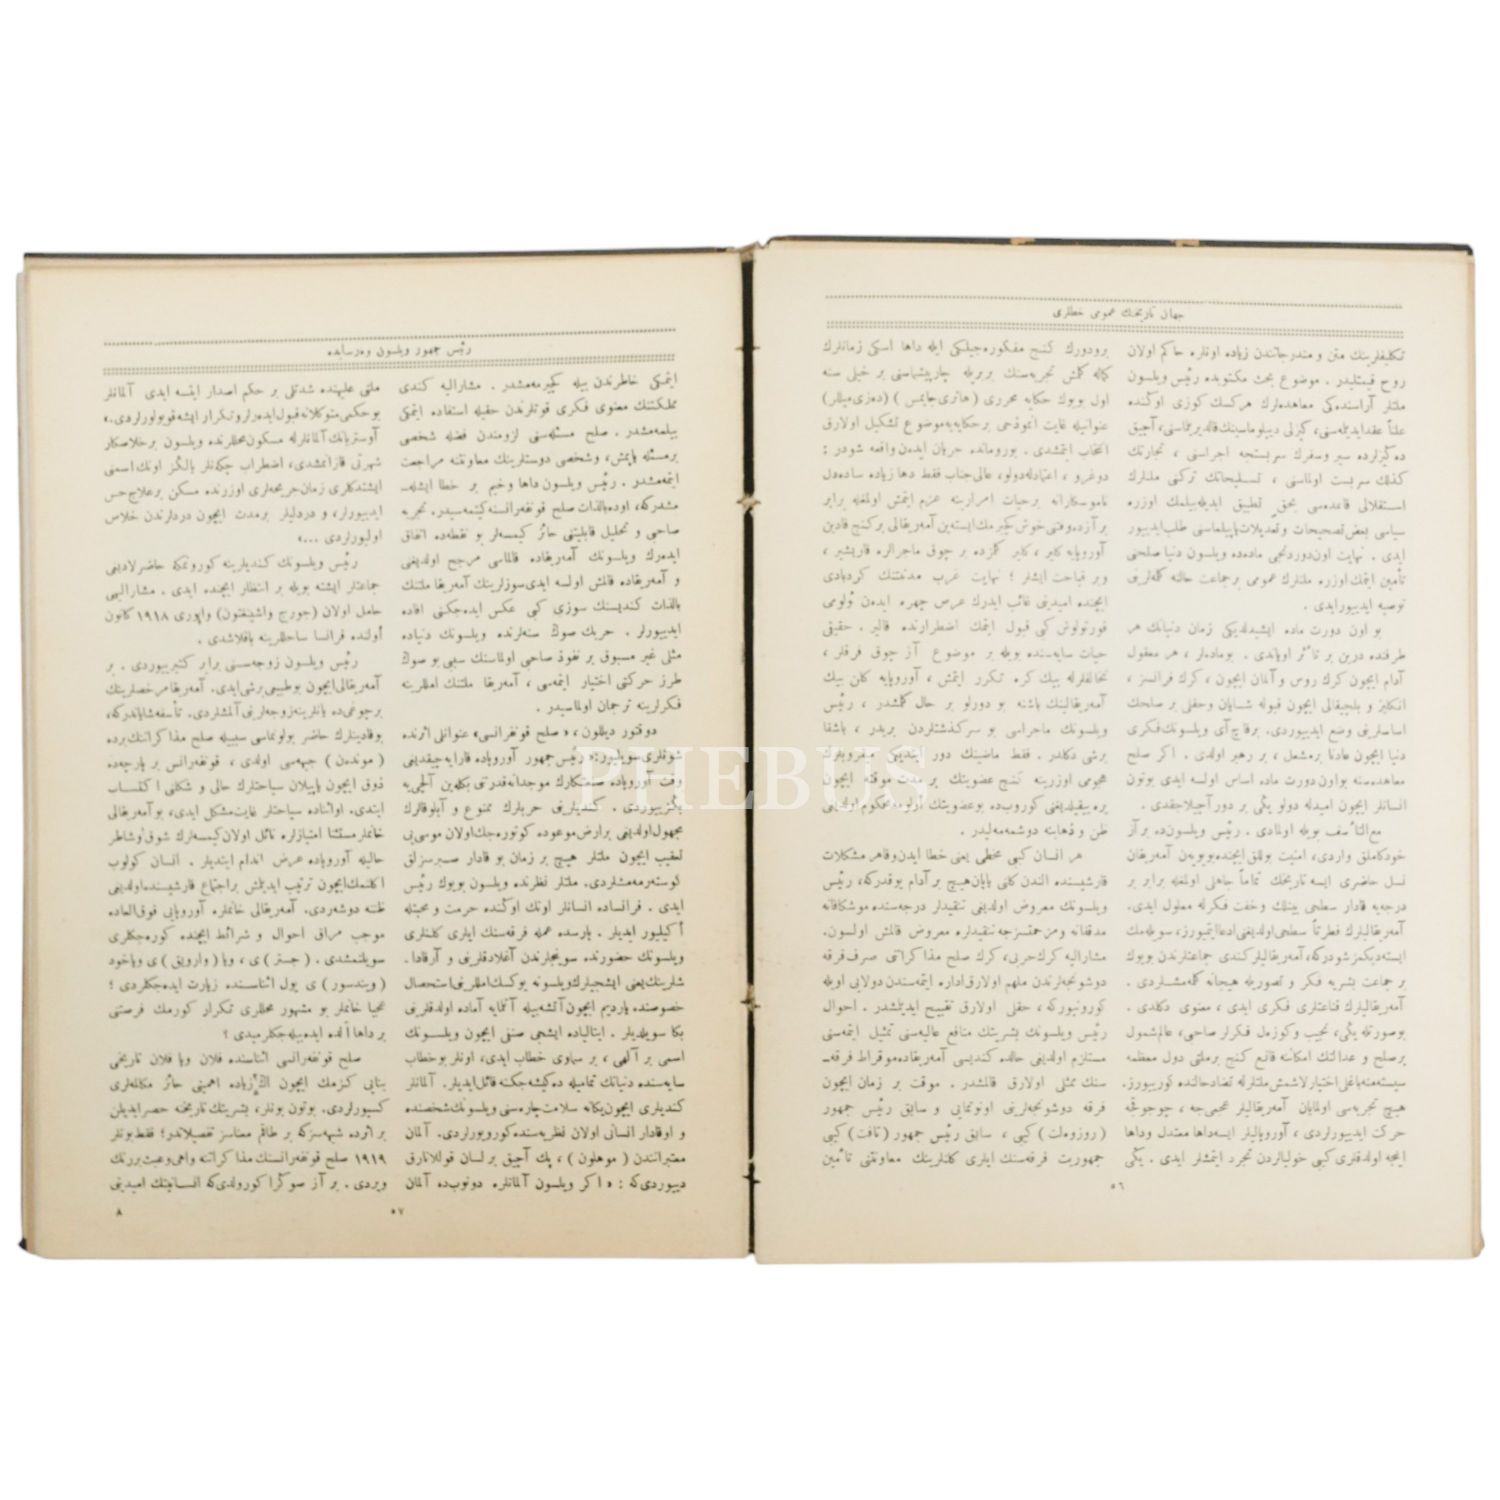 جهان تاریخنك عمومی خطلری
تكلیفلرینك متن و مندرجاتندن زیاده اونلره حاكم اولان
روح قیمتلیدر . موضوع بحث مكتوبده رئیس ویلسون
ملتلر آراسنده‌كی معاهده‌لرك هركسك كوزی اوكنده
علناً عقد ایدیلمه‌سنی، كیزلی دیپلوماسینك قالدیریلماسنی، آچیق
ده‌كیزلرده سیر وسفرك سربستجه اجراسنی ، تجارتك
كذلك سربست اولماسنی ، تسلیحاتك تركنی ملتلرك
استقلالی قاعده‌سی بحق تطبیق ایدیله‌بیلمك اوزره
سیاسی بعض تصحیحات و تعدیلات یاپیلماسنی طلب ایدییور
ایدی . نهایت اون دوردنجی ماده‌ده ویلسون دنیا صلحنی
تأمین ایتمك اوزره ملتلرك عمومی بر جماعت حالنه كلمه‌لرینی
توصیه ایدییوردی .
بو اون دورت ماده ایشیدلدیكی زمان دنیانك هر
طرفنده درین بر تأثر اویاندی . بو ماده‌لر ، هر معقول
آدام ایچون كرك روس و آلمان ایچون ، كرك فرانسز ،
انكلیز و بلچیقالی ایچون قبوله شایان وحقلی بر صلحك
اساسلرینی وضع ایدییوردی. برقاچ آی ویلسونك فكری
دنیا ایچون عادتا برمشعل ، بر رهبر اولدی . اكر صلح
معاهده‌سنه بو اون دورت ماده اساس اولسه ایدی بوتون
انسانلر ایچون امیدله دولو یكی بر دور آچیلاجقدی .
مع التأسف بویله اولمادی . رئیس ویلسون‌ده بر آز
خودكاملق واردی، امنیت بوللق ایچنده بویویه‌ن آمه‌ریقان
نسل حاضری ایسه تاریخك تماماً جاهلی اولمغله برابر بر
درجه‌یه قادار سطحی بینلك وخفت فكرله معلول ایدی.
آمه‌ریقالیلرك فطرتاً سطحی اولدیغنی ادعا ایتمیورز، سویله‌مك
ایسته‌دیكمز شودركه، آمه‌ریقالیلر كندی جماعتلرندن بویوك
بر جماعت بشریه فكر و تصوریله هیجانه كلمه‌مشلردی .
آمه‌ریقالیلرك قناعتلری فكری ایدی ، معنوی دكلدی .
بوصورتله یكی، نجیب وكوزه‌ل فكرلر صاحبی، عالمشمول
بر صلح و عدالتك امكاننه قانع كنج برملتی دول معظمه
سیستمنه باغلی اختیارلاشمش ملتلرله تضاد حالنده كورییورز.
هیچ تجربه‌سی اولمایان آمه‌ریقالیلر عجمیجه ، چوجوقجه
حركت ایدییورلردی ، آوروپالیلر ایسه داها معتدل وداها
اینجه اولدقلری كبی خولیالردن تجرد ایتمشلر ایدی . یكی
برودورك كنج مفكوره‌جیلكی ایله داها اسكی زمانلرك
كماله كلمش تجربه‌سنك بربریله چارپیشماسنی بر خیلی سنه
اول بویوك حكایه محرری (هانری جایمس) (ده‌زی میللر)
عنوانیله غایت انموذجی بر حكایه‌یه موضوع تشكیل اولارق
انتخاب ایتمشدی . بورومانده جریان ایدن واقعه شودر :
دوغرو ، اعتمادله دولو، عالی جناب فقط دها زیاده ساده‌دل
ناموسكارانه بر حیات امرارینه عزم ایتمش اولمغله برابر
بر آزده وقتنی خوش كچیرمك ایسته‌ین آمه‌ریقالی بر كنج قادین
آوروپایه كلیر ، كلیر كلمزده بر چوق ماجرالره قاریشیر ،
وبر قباحت ایشلر ؛ نهایت غرب مدنیتنك كردبادی
ایچنده امیدینی غائب ایدرك عرس چهره ایدن ئولومی
قورتولوش كبی قبول ایتمك اضطرارنده قالیر . حقیقی
حیات سایه‌سنده بویله بر موضوع آز چوق فرقلر ،
تخالفلرله بیك كره تكرر ایتمش ، آوروپایه كلن بیك
آمه‌ریقالینك باشنه بو دورلو بر حال كلمشدر ، رئیس
ویلسونك ماجراسی بو سركذشتلردن بریدر ، باشقا
برشی دكلدر . فقط ماضینك دور ایدنجی میقروبلرك
هجومی اوزرینه كنج عضویتك بر مدت موقته ایچون
یره ییقیلدیغنی كوروب‌ده بو عضویتك ئولومه محكوم اولدیغنی
ظن و ذهابنه دوشمه‌ملیدر .
هر انسان كبی مخطی یعنی خطا ایدن وقاهر مشكلات
قارشیسنده النده‌ن كلنی یاپان هیچ بر آدام یوقدركه، رئیس
ویلسونك معروض اولدیغی تنقیدلر درجه‌سنده موشكافانه
مدققانه و مرحمتسزجه تنقیدلره معروض قالمش اولسون.
مشارالیه كرك حربی، كرك صلح مذاكراتنی صرف فرقه
دوشونجه‌لرندن ملهم اولارق اداره ایتمه‌سندن دولایی اویله
كورونیوركه ، حقلی اولارق تقبیح ایدیلمشدر . احوال
رئیس ویلسونك بشریتك منافع عالیه‌سنی تمثیل ایتمه‌سنی
مستلزم اولدیغی حالده كندیسی آمه‌ریقاده موقراط فرقه‌ـ
سنك ممثلی اولارق قالمشدر . موقت بر زمان ایچون
فرقه دوشونجه‌لرینی اونوتمایی و سابق رئیس جمهور
(روزوه‌لت) كبی ، سابق رئیس جمهور (تافت) كبی
جمهوریت فرقه‌سنك ایلری كلنلرینك معاونتنی تأمین
٥٦
رئیس جمهور ویلسون وه‌رسایده
ایتمكی خاطرندن بیله كچیرمه‌مشدر . مشارالیه كندی
مملكتنك معنوی فكری قوتلرندن حقیله استفاده ایتمكی
بیلمه‌مشدر . صلح مسئله‌سنی لزومندن فضله شخصی
بر مسئله یاپمش، وشخصی دوستلرینك معاونتنه مراجعت
ایتمه‌مشدر . رئیس ویلسون داها وخیم بر خطا ایشله‌ـ
مشدركه، اوده بالذات صلح قونفرانسنه كیتمه‌سیدر. تجربه
صاحبی و تحلیل قابلیتنی حائز كیمسه‌لر بو نقطه‌ده اتفاق
ایده‌رك ویلسونك آمه‌ریقاده قالماسی مرجح اولدیغنی
و آمه‌ریقاده قالمش اولسه ایدی سوزلرینك آمه‌ریقا ملتنك
بالذات كندیسنك سوزی كبی عكس ایده‌جكنی افاده
ایدییورلر . حربك صوك سنه‌لرنده ویلسونك دنیاده
مثلی غیر مسبوق بر نفوذ صاحبی اولماسنك سببی بو صوك
طرز حركتی اختیار ایتمه‌سی ، آمه‌ریقا ملتنك امللرینه
فكرلرینه ترجمان اولماسیدر .
دوقتور دیللون ، «صلح قونفرانسی» عنوانلی اثرنده
شونلری سویلیور: «رئیس جمهور آوروپاده قارایه چیقدیغی
وقت آوروپاده صنعتكارك موجدانه قدرتنی بكله‌ین آلچی‌یه
بكزییوردی . كندیلرینی حربلرك ممنوع و آبلوقالرك
مجهول اولدیغی بر ارض موعوده كوتوره‌جك اولان موسی‌یی
تعقیب ایچون ملتلر هیچ بر زمان بو قادار صبرسزلق
كوسترمه‌مشلردی. ملتلر نظرنده ویلسون بویوك رئیس
ایدی . فرانساده انسانلر اونك اوكنده حرمت و محبتله
اكیلیور ایدیلر . پارسده عمله فرقه‌سنك ایلری كلنلری
ویلسونك حضورنده سوینجلرندن آغلادقلرینی و آرقادا.
شلرینك یعنی ایشچیلرك ویلسونه یوكسك امللرینی استحصال
خصوصنده یاردیم ایچون آتشه بیله آتلمایه آماده اولدقلرینی
بكا سویلدیلر . ایتالیاده ایشجی صنفی ایچون ویلسونك
اسمی بر آلهی ، بر سماوی خطاب ایدی، اونلر بو خطاب
سایه‌سنده دنیانك تمامیله ده‌كیشه‌جكنه قائل ایدیلر. آلمانلر
كندیلری ایچون یكانه سلامت چاره‌سنی ویلسونك شخصنده
و اوقادار انسانی اولان نظریه‌سنده كورویورلردی. آلمان
معتبرانندن (موهلون) ، پك آچیق بر لسان قوللانارق
دییوردی كه : «اكر ویلسون آلمانلره دونوب‌ده آلمان
ملتی علیهنده شدتلی بر حكم اصدار ایتسه ایدی آلمانلر
بو حكمی متوكلانه قبول ایده‌رلر و تكرار ایشه قویولورلردی.»
آوستریانك آلمانلرله مسكون محللرنده ویلسون بر خلاصكار
شهرتی قازانمشدی، اضطراب چكه‌نلر یالكز اونك اسمنی
ایشیتدكلری زمان جریحه‌لری اوزرنده مسكن بر علاج حس
ایدییورلر، و دردلیلر بر مدت ایچون دردلرندن خلاص
اولیورلردی ...»
رئیس ویلسونك كندیلرینه كورونمكه حاضرلاندیغی
جماعتلر ایشته بویله بر انتظار ایچنده ایدی . مشارالیهی
حامل اولان (جورج واشینغتون) واپوری ١٩١٨ كانون
أولنده فرانسا ساحللرینه یاقلاشدی .
رئیس ویلسون زوجه‌سنی برابر كتیرییوردی . بر
آمه‌ریقالی ایچون بو طبیعی برشی ایدی. آمه‌ریقا مرخصلرینك
بر چوغی ده یانلرینه زوجه‌لرینی آلمشلردی. تأسفه شایاندركه،
بو قادینلرك حاضر بولونماسی سببیله صلح مذاكراتنك برده
(مونده‌ن) جبهه‌سی اولدی ، قونفرانس بر پارچه‌ده
ذوق ایچون یاپیلان سیاحتلرك حالی و شكلنی اكتساب
ایتدی. اوائناده سیاحتلر غایت مشكل ایدی، بو آمه‌ریقالی
خانملر مستثنا امتیازلره نائل اولان كیمسه‌لرك شوق وشاطر
حالیله آوروپاده عرض اندام ایتدیلر . انسان كولوب
اكلنمك ایچون ترتیب ایدیلمش بر اجتماع قارشیسنده اولدیغی
ظننه دوشه‌ردی. آمه‌ریقالی خانملره آوروپایی فوق العاده
موجب مراق احوال و شرائط ایچنده كوره‌جكلری
سویلنمشدی . (چستر) ی ، ویا (وارویق) ی ویاخود
(ویندسور) ی یول اثناسنده زیارت ایده‌جكلردی ؛
عجبا خانملر بو مشهور محللری تكرار كورمك فرصتنی
بر داها الده ایده‌بیله جكلرمیدی ؟
صلح قونفرانسی اثناسنده فلان ویا فلان تاریخی
بنایی كزمك ایچون اك زیاده اهمیتی حائز مكالمه‌لری
كسیورلردی. بوتون بونلر، بشریتك تاریخنه حصر ایدیلن
بر اثرده شبهه‌سزكه بر طاقم معناسز تفصیلاتدر؛ فقط بونلر
١٩١٩ صلح قونفرانسنك مذاكراتنه واهی وعبث بر رنك
ویردی . بر آز صوكرا كورولدی كه انسانیتك امیدینی
٥٧
٨
PHEBUS